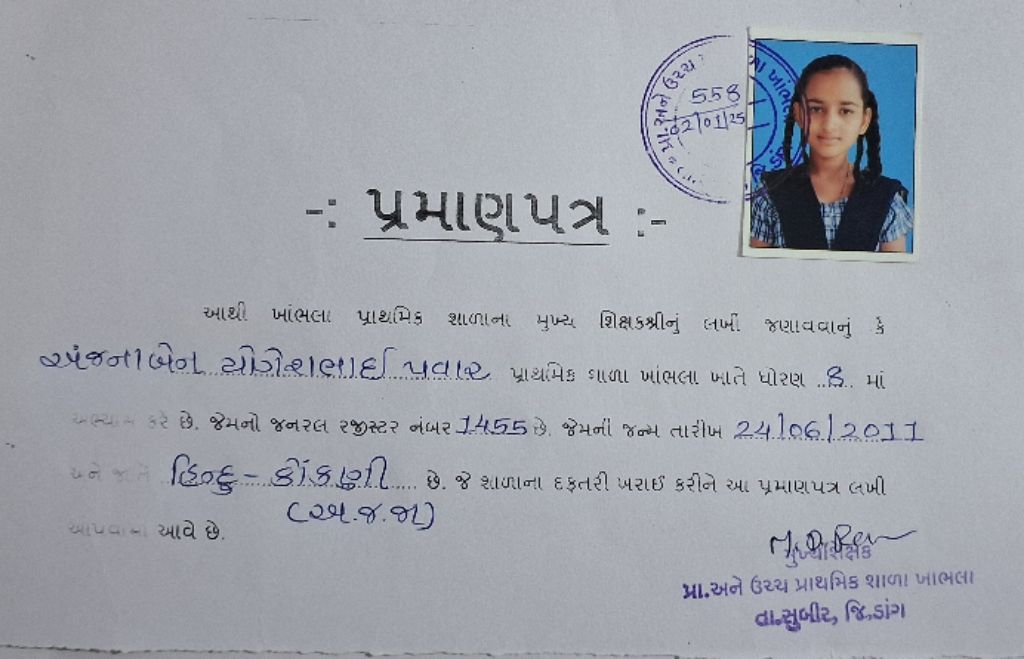 પ્રા.અને ઉચ્ચ
ળા ખાંભલા
558
02/01/25
-: પ્રમાણપત્ર :-
આથી ખાંભલા પ્રાથમિક શાળાના મુખ્ય શિક્ષકશ્રીનું લખી જણાવવાનું કે
અંજનાબેન યોગેશભાઈ પવાર પ્રાથમિક શાળા ખાંભલા ખાતે ધોરણ ..8.. માં
અભ્યાસ કરે છે. જેમનો જનરલ રજીસ્ટર નંબર 1455 છે. જેમની જન્મ તારીખ 24/06/2011
અને જાતે હિન્દુ - કોંકણી .... છે. જે શાળાના દફતરી ખરાઈ કરીને આ પ્રમાણપત્ર લખી
(અ.જ.જા)
આપવામાં આવે છે.
મુખ્યશિક્ષક
પ્રા.અને ઉચ્ચ પ્રાથમિક શાળા ખાંભલા
તા.સુબીર, જિ.ડાંગ